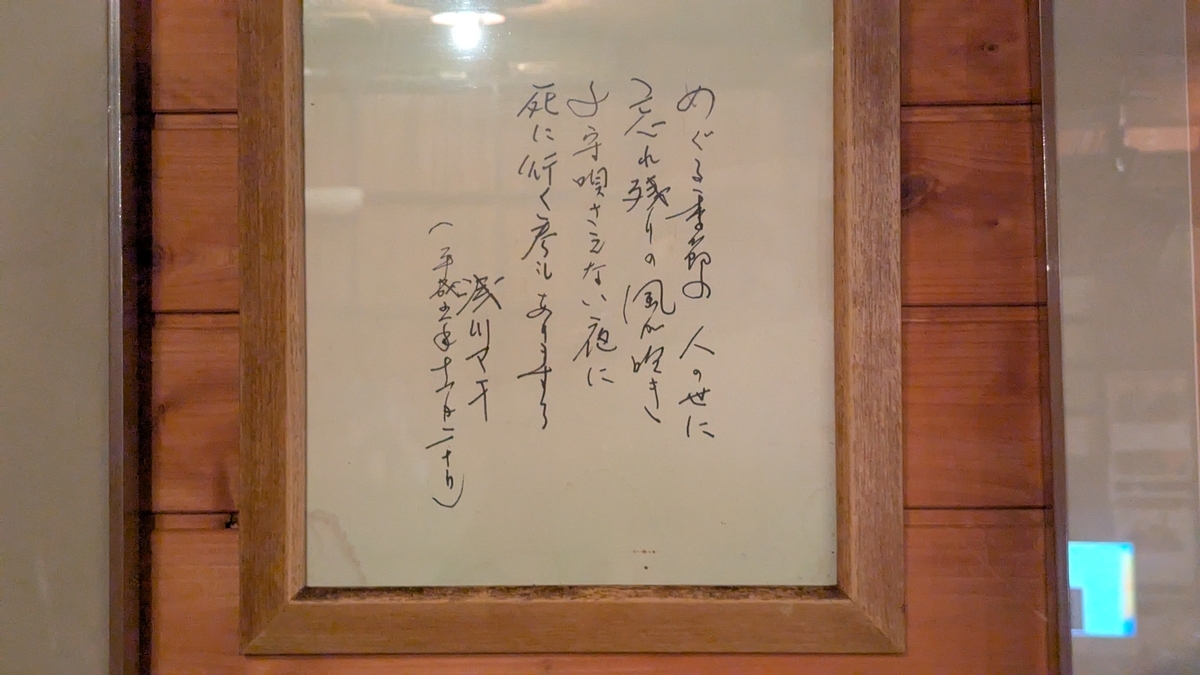 めぐる季節の 人の世に
忘れ残りの 風が吹き
子守唄さえない夜に
死に行く者も ありまする
浅川マキ
(平成五年十二月二十日)